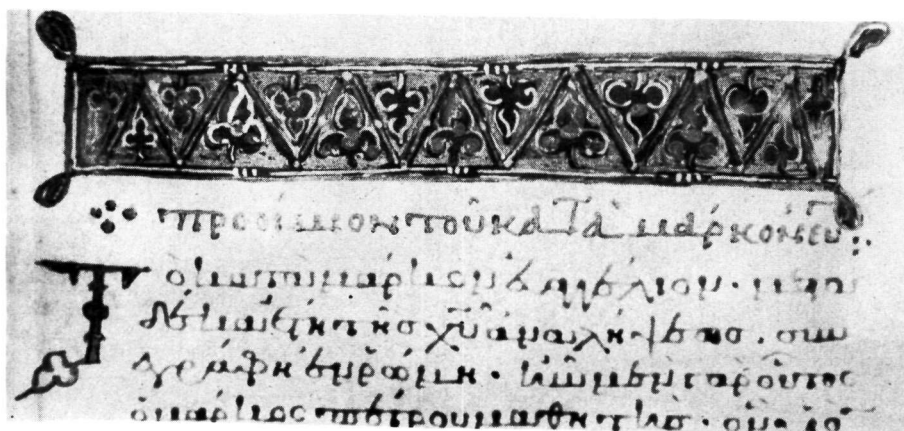 προοίμιον τοῦ κατὰ μάρκον εὐ
Τὸ κατὰ μάρκον εὐαγγέλιον · μετὰ
δέκα ἔτη τῆς χῦ ἀναλήψεως · συν
εγράφη ἐν ρώμη · ἦν μὲν γὰρ οὗτος
ὁ μάρκος πέτρου μαθητὴς ·